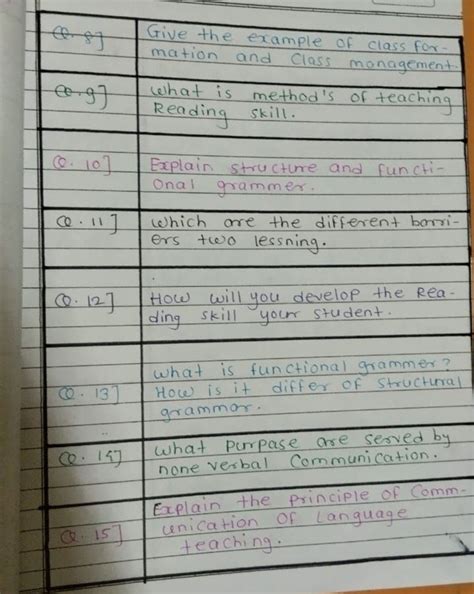 Q. 8] Give the example of class for-
mation and class management.
Q. 9] what is method's of teaching
Reading skill.
Q. 10] Explain structure and functi-
onal grammer.
Q. 11] which are the different barri-
ers two lessning.
Q. 12] How will you develop the Rea-
ding skill your student.
what is functional grammer?
Q. 13] How is it differ of structural
grammar.
Q. 14] what purpase are served by
none verbal communication.
Explain the principle of Comm-
unication of Language
Q. 15] teaching.